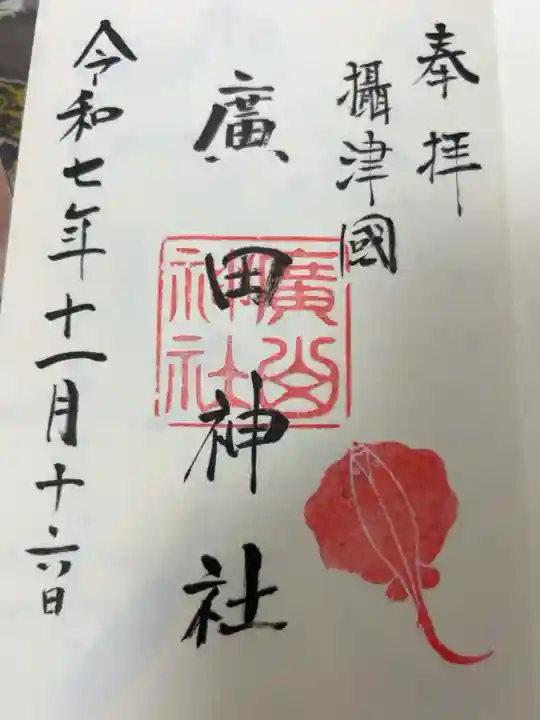 奉拝
攝津國
廣田神社
令和七年十一月十六日